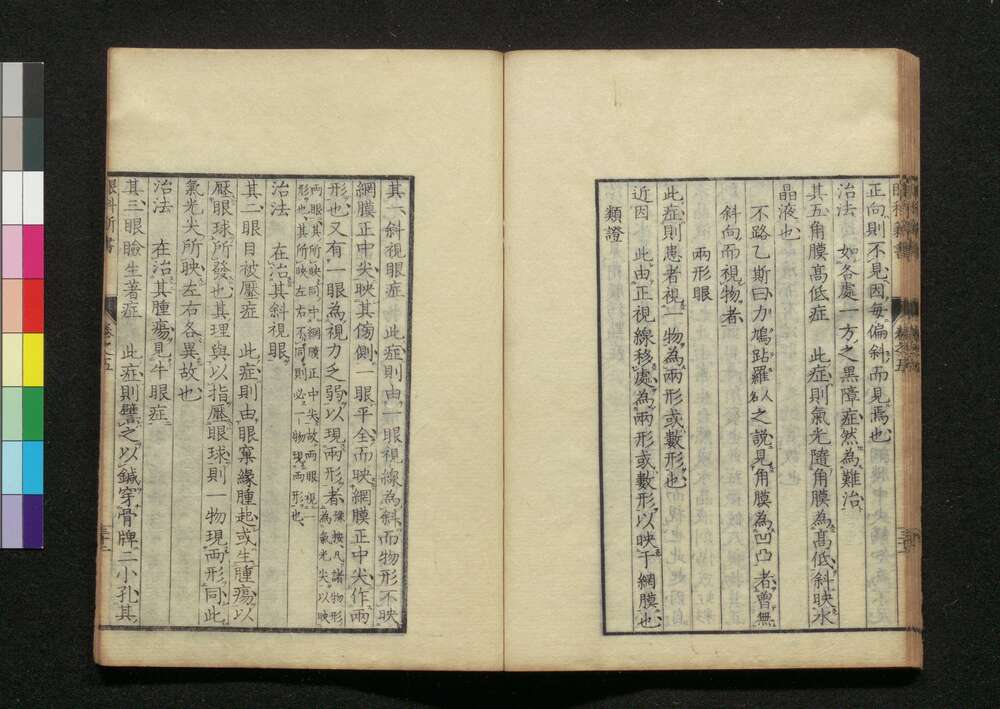 正向則不見因每偏斜而見焉也
治法　如各處一方之黑障症然為難治
其五角膜髙低症　此症則氣光隨角膜為髙低斜映水
晶液也
不路乙斯曰力鳩跕羅以名之說見角膜為凹凸者曾無
斜向而視物者
兩形眼
此症則患者視一物為兩形或數形也
近因　此由正視線移處為兩形或數形以映于網膜也
類證
其一斜視眼症　此症則由一眼視線為斜而物形不映
網膜正中尖映其傍側一眼平全而映網膜正中尖作兩
形也又有一眼為視力乏弱以現兩形者豫按凡諸物形為氣光尖以映
兩眼其所映同中網膜正中尖故兩眼視一形也其所映左右不同則必一物現兩形也
治法　在治其斜視眼
其二眼目被壓症　此症則由眼窠緣腫起或生腫瘍以
壓眼球所發也其理與以指壓眼球則一物現兩形同此
氣光尖所映左右各異故也
治法　在治其腫瘍見牛眼症
其三眼瞼生著症　此症則譬之以鍼穿骨牌二小孔其
眼科新書
卷之五